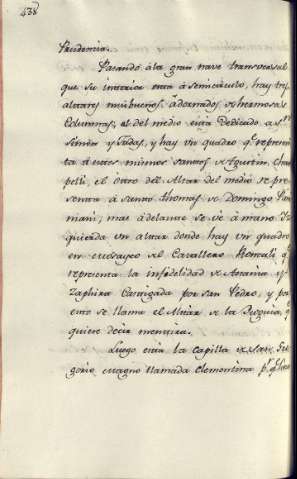 438
Prudencia.
Pasando á la gran nave transversal
que su interior esta á semicirculo, hay tres
altares mui buenos, adornados de hermosas
Columnas, el del medio esta Dedicado a Sn.
Simon y Judas, y hay un quadro qe. represen
ta á estos mismos santos de Agustin Ciam
pelli, el otro del Altar del medio re pre
senta á santo Thomas de Domingo Pas
inani, mas adelante se ve á mano Iz
quierda un altar donde hay un quadro
en del Cavallero Romcali qe.
representa la infidelidad de Ananias y
Zaphira Castigada por san Pedro, y por
esto se llama el Altar de la Bugia, qe.
quiere decir mentira.
Luego esta la Capilla de San Gre
gorio magno llamada Clementina pr. qe.